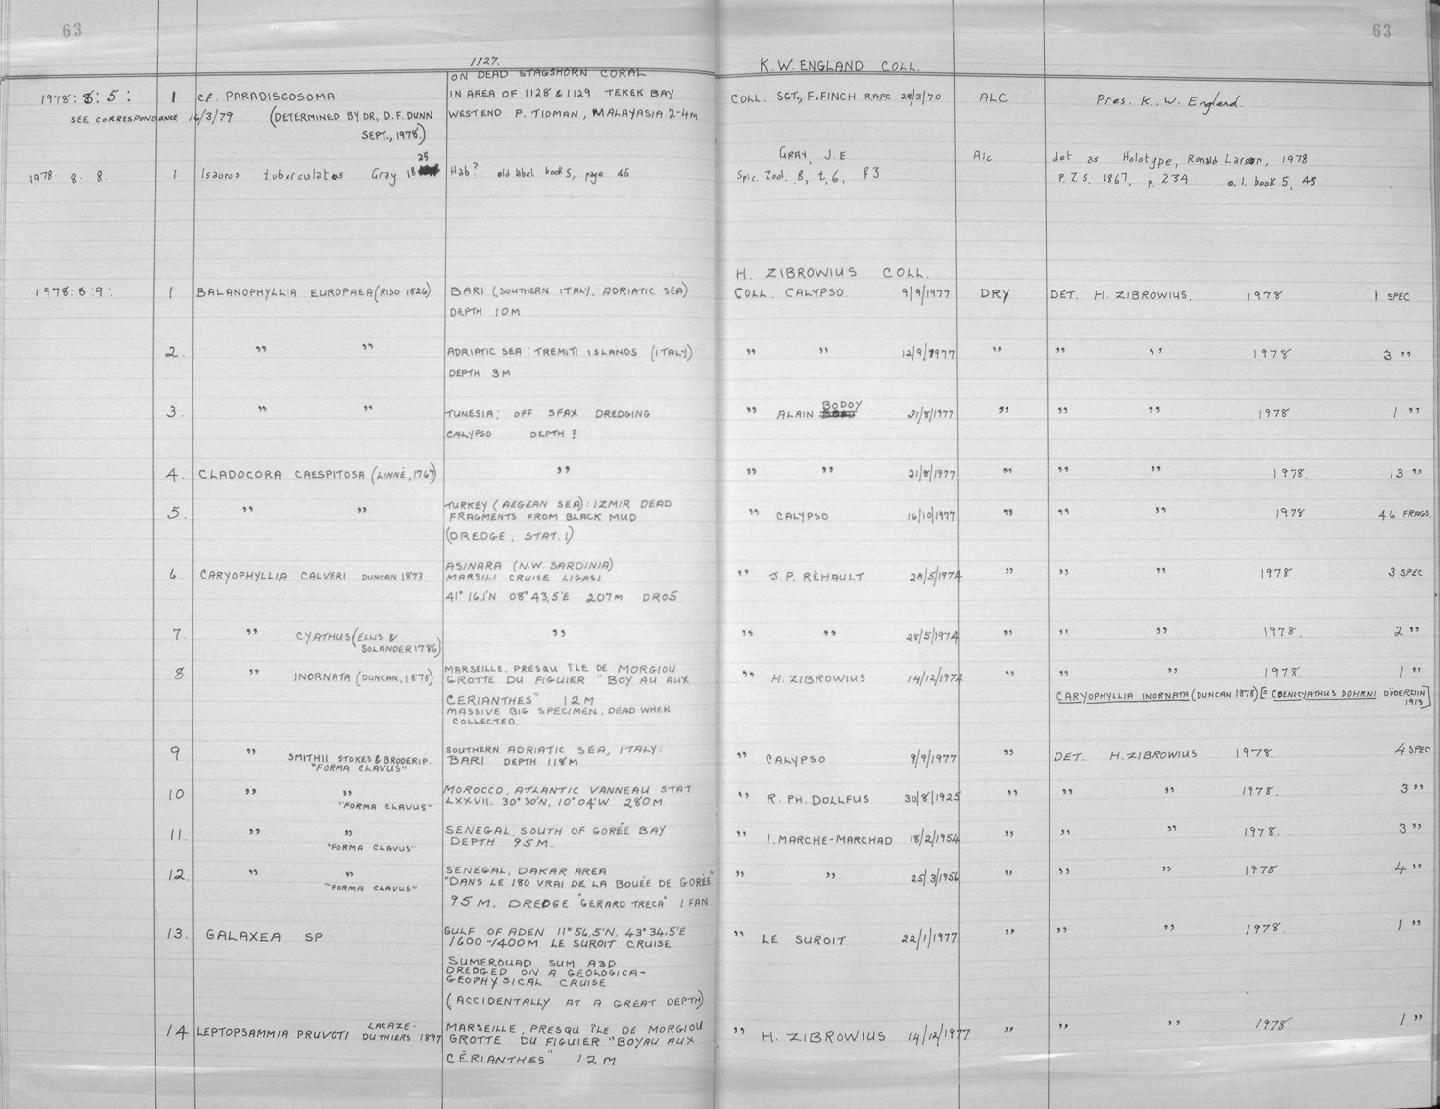 63 63
1127.
K.W. ENGLAND COLL.
ON DEAD STAGSHORN CORAL
1978: 8: 5: 1 CF. PARADISCOSOMA IN AREA OF 1128 & 1129 TEKEK BAY COLL. SGT., F. FINCH RAPC 28/3/70 ALC Pres. K. W. England.
SEE CORRESPONDANCE 16/3/79 (DETERMINED BY DR, D.F. DUNN WESTEND P. TIOMAN, MALAYASIA. 2-4M
SEPT., 1978.)
1978. 8. 8. 1 Isaurus tuberculatos Gray 1825 Hab? old label book 5, page 45 GRAY, J.E Alc det as Holotype, Ronald Larson, 1978
Spic. Zool. 8, t, 6, f 3 P.Z.S. 1867, p. 234. o.l. book 5, 45
H. ZIBROWIUS COLL.
1978: 8: 9: 1 BALANOPHYLLIA EUROPAEA (RISO 1826) BARI (SOUTHERN ITALY, ADRIATIC SEA) COLL. CALYPSO. 9/9/1977 DRY DET. H. ZIBROWIUS. 1978 1 SPEC
DEPTH 10M
2. " " ADRIATIC SEA: TREMITI ISLANDS (ITALY) " " 12/9/1977 " " " 1978 3 "
DEPTH 3M
3. " " TUNESIA; OFF SFAX DREDGING " ALAIN BODOY 21/8/1977 " " " 1978 1 "
CALYPSO DEPTH ?
4. CLADOCORA CAESPITOSA (LINNÉ, 1767) " " " 21/8/1977 " " " 1978. 13 "
5. " " TURKEY (AEGEAN SEA): IZMIR DEAD " CALYPSO 16/10/1977 " " " 1978 46 FRAGS.
FRAGMENTS FROM BLACK MUD
(DREDGE, STAT. 1)
6. CARYOPHYLLIA CALVERI DUNCAN 1873 ASINARA (N.W. SARDINIA) " J.P. RÉHAULT 28/5/1974 " " " 1978. 3 SPEC
MARSILI CRUISE LIGASI
41° 16.1'N 08° 43.5'E 207M DR05
7. " CYATHUS (ELLIS & " " " 28/5/1974 " " " 1978. 2 "
SOLANDER 1786)
8 " INORNATA (DUNCAN, 1878) MARSEILLE, PRESQU ÎLE DE MORGIOU " H. ZIBROWIUS 14/12/1974 " " " 1978. 1 "
GROTTE DU FIGUIER "BOY AU AUX
CERIANTHES" 12M CARYOPHYLLIA INORNATA (DUNCAN 1878) [= COENICYATHUS DOHRNI DÖDERLIN 1913]
MASSIVE BIG SPECIMEN, DEAD WHEN
COLLECTED.
9 " SMITHII STOKES & BRODERIP. SOUTHERN ADRIATIC SEA, ITALY: " CALYPSO 9/9/1977 " DET. H. ZIBROWIUS 1978. 4 SPEC
"FORMA CLAVUS" BARI DEPTH 118M
10 " " MOROCCO, ATLANTIC VANNEAU STAT " R. PH. DOLLFUS 30/8/1925 " " " 1978. 3 "
"FORMA CLAVUS" LXXVII. 30° 30'N, 10° 04'W 280M
11. " " SENEGAL, SOUTH OF GORÉE BAY " I. MARCHE-MARCHAD 18/2/1954 " " " 1978. 3 "
"FORMA CLAVUS" DEPTH 95M.
12. " " SENEGAL, DAKAR AREA " " 25/3/1956 " " " 1978 4 "
"FORMA CLAVUS" "DANS LE 180 VRAI DE LA BOUÉE DE GORÉE"
95M. DREDGE "GERARD TRECA" 1 FAN
13. GALAXEA SP GULF OF ADEN 11° 56.5'N. 43° 34.5'E " LE SUROIT 22/1/1977 " " " 1978. 1 "
1600-1400M LE SUROIT CRUISE
SUMEROUAD SUM A3D
DREDGED ON A GEOLOGICA-
GEOPHYSICAL CRUISE
(ACCIDENTALLY AT A GREAT DEPTH)
14 LEPTOPSAMMIA PRUVOTI LACAZE- MARSEILLE, PRESQU ÎLE DE MORGIOU " H. ZIBROWIUS 14/12/1977 " " " 1978 1 "
DUTHIERS 1897 GROTTE DU FIGUIER "BOYAU AUX
CÉRIANTHES" 12M